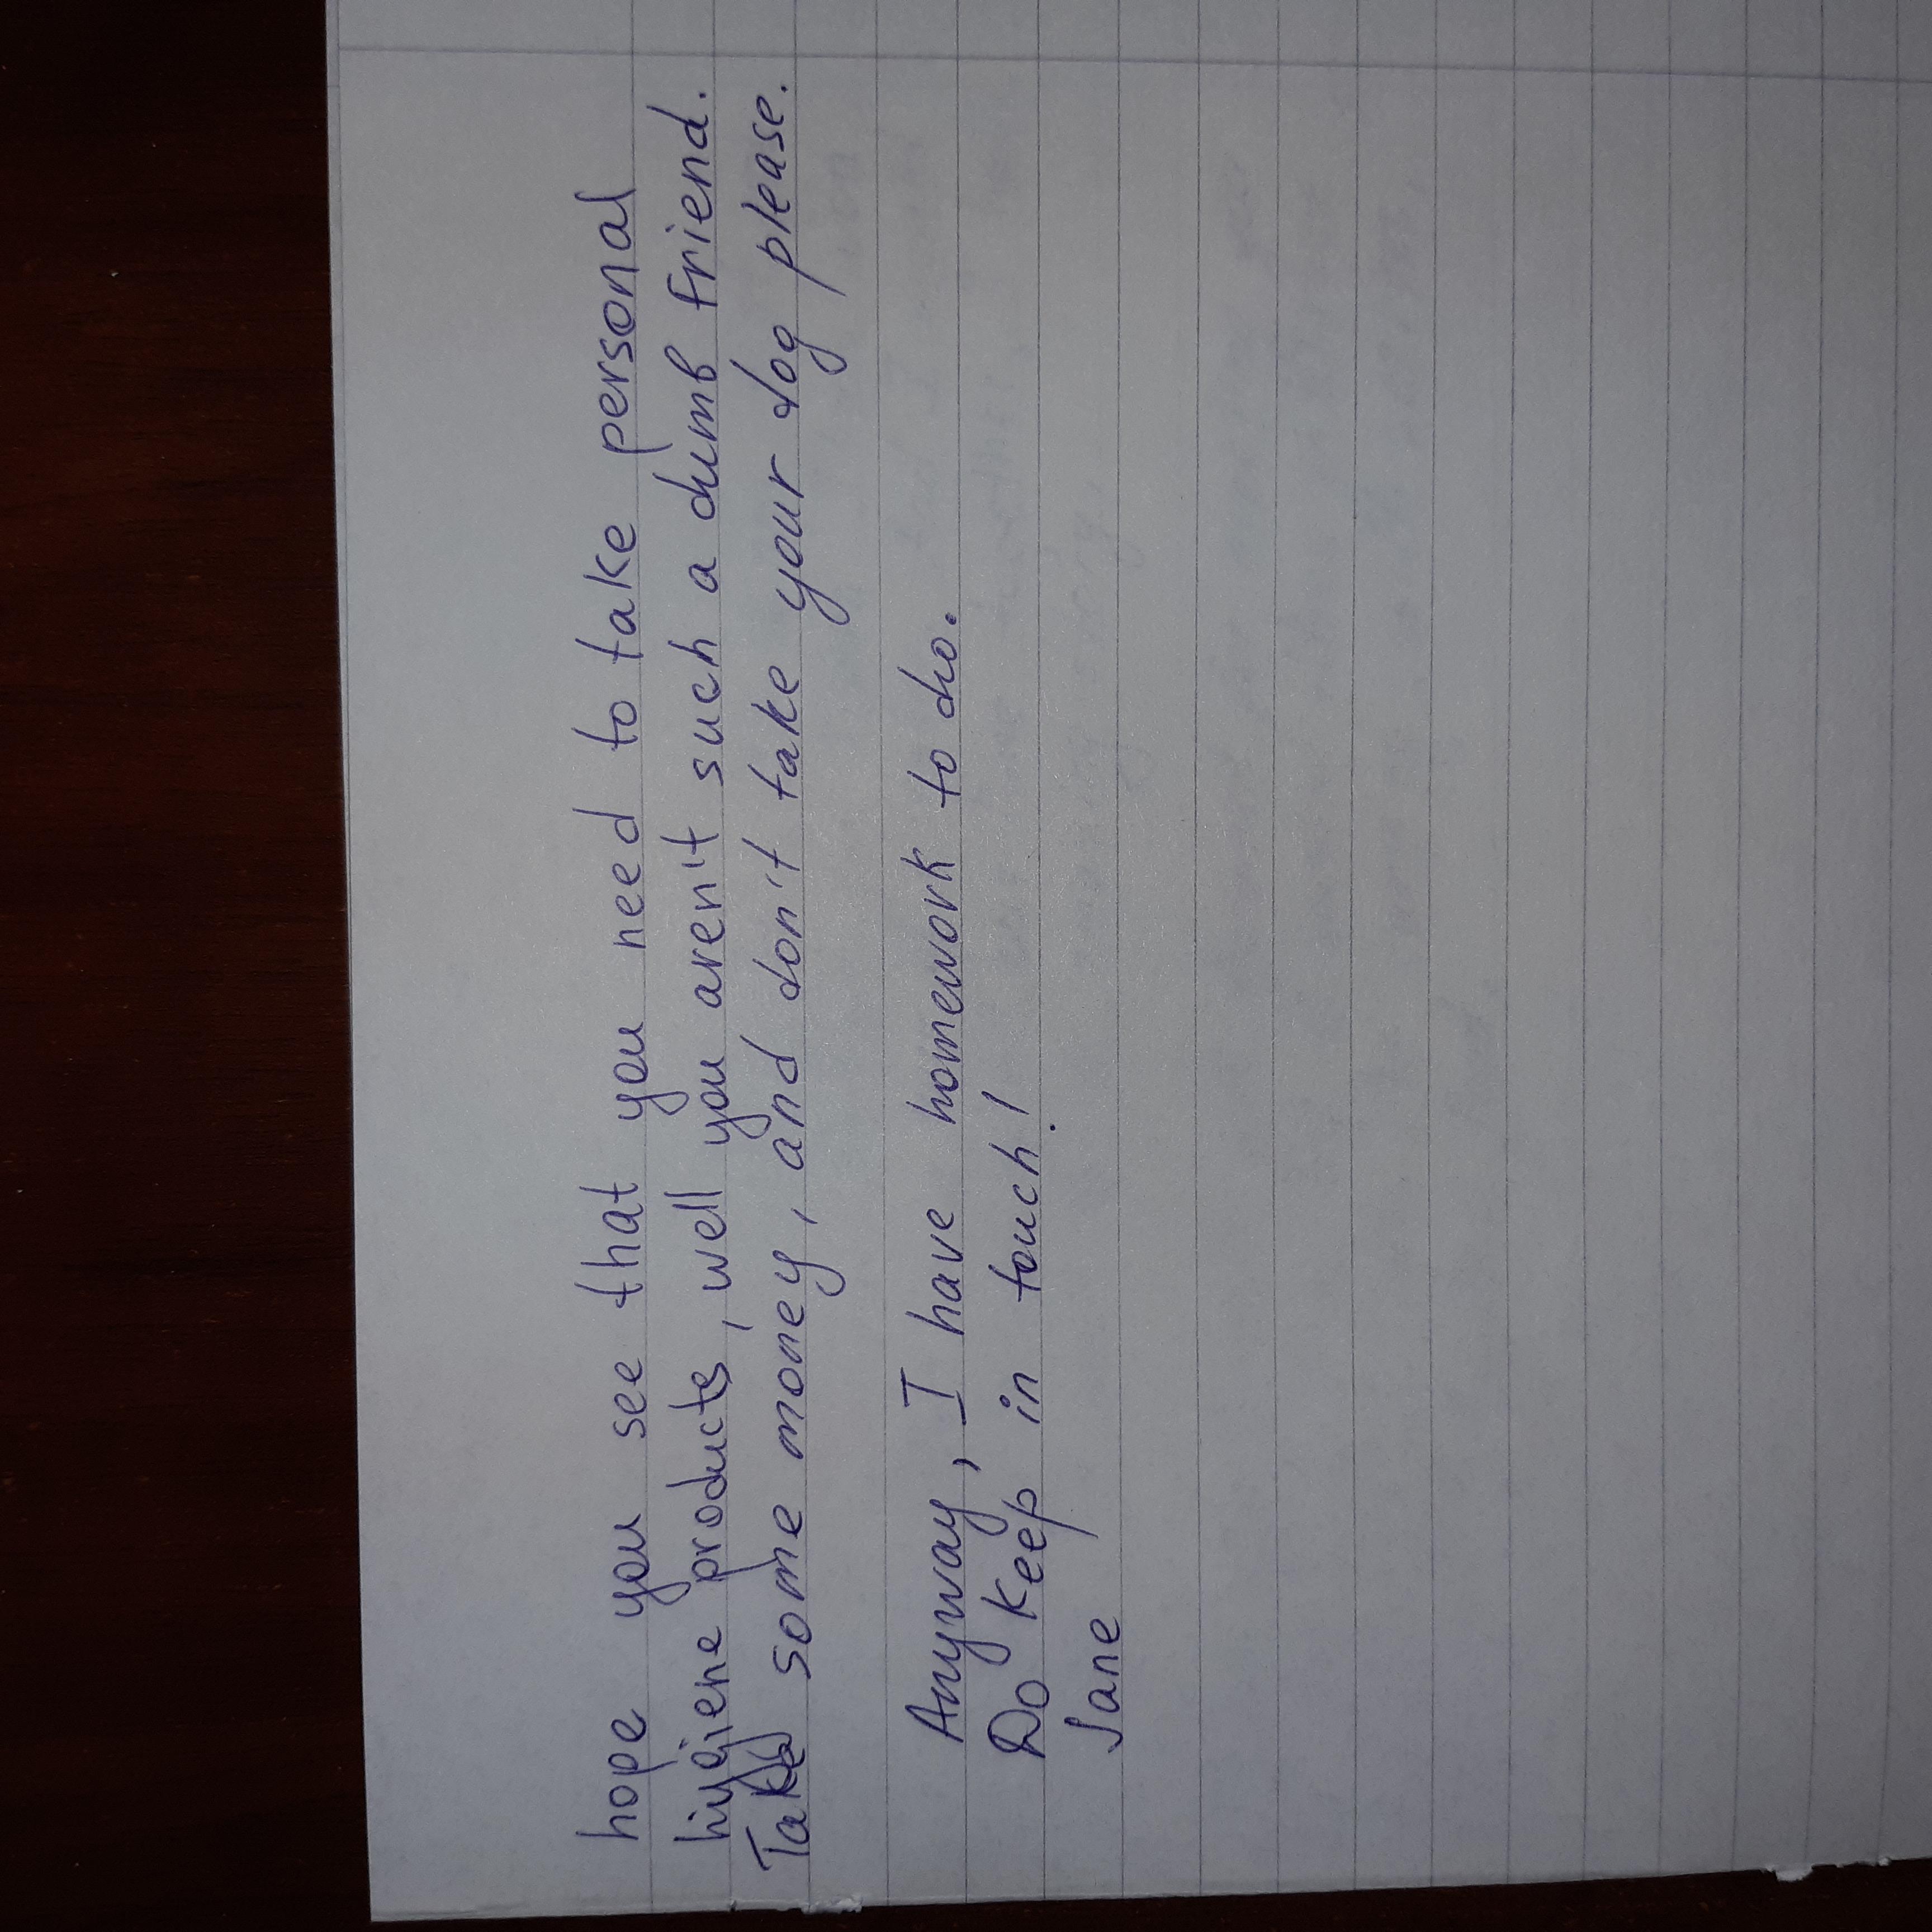 hope you see that you need to take personal
hiygiene products, well you aren't such a dumb friend.
Take some money, and don't take your dog please.
Anyway, I have homework to do.
Do keep in touch!
Jane